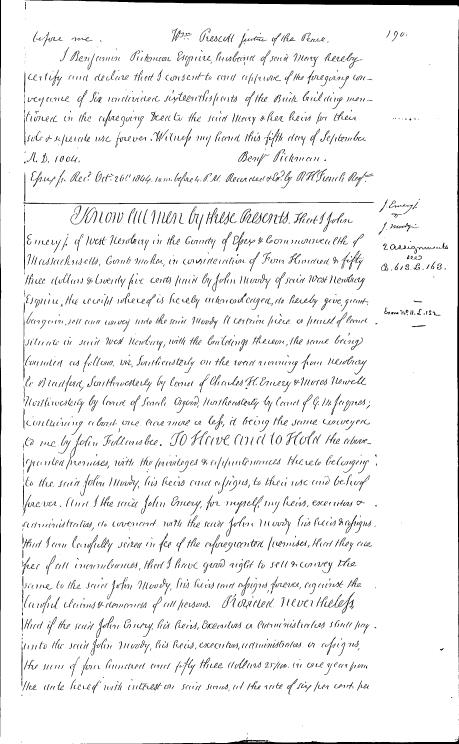 before me. Wm Prescott Justice of the Peace. 190.
I Benjamin Pickman Esquire, husband of said Mary hereby
certify and declare that I consent to and approve of the foregoing con-
veyance of Six undivided sixteenth parts of the Brick building men-
tioned in the aforegoing Deed to the said Mary & her heirs for their
sole & separate use forever. Witness my hand this fifth day of September
A. D. Benj. Pickman.
Essex ss. Recd. Oct. 26th 1844. before P.M. Recorded & Ex. by R. H. French Regr.
Know all men by these Presents, That I John
Emery Jr. of West Newbury in the County of Essex & Commonwealth of
Massachusetts, Comb maker, in consideration of Four Hundred & fifty
three dollars & twenty five cents paid by John Moody of said West Newbury
Esquire, the receipt whereof is hereby acknowledged, do hereby give, grant,
bargain, sell and convey unto the said Moody A certain piece or parcel of land
situate in said West Newbury, with the buildings thereon, the same being
bounded as follows, viz, Southeasterly on the road running from Newbury
to Bradford, Southwesterly by land of Charles H. Emery & Moses Newell
Northwesterly by land of Sarah Northeasterly by land of G. M.
containing about one acre more or less, it being the same conveyed
to me by John Follansbee. To Have and to Hold the above
granted premises, with the privileges & appurtenances thereto belonging
to the said John Moody, his heirs and assigns, to their use and behoof
forever. And I the said John Emery, for myself, my heirs, executors &
administrators, do covenant with the said John Moody his heirs & assigns
that I am lawfully seized in fee of the aforegranted premises, that they are
free of all incumbrances, that I have good right to sell & convey the
same to the said John Moody, his heirs and assigns, forever, against the
lawful claims & demands of all persons. Provided Nevertheless
that if the said John Emery, his heirs, executors or administrators shall pay
unto the said John Moody, his heirs, executors, administrators or assigns,
the sum of four hundred and fifty three dollars in one year from
the date hereof with interest on said sum, at the rate of six per cent. per
J. Emery Jr.
to
J. Moody
2 assignments
B. 618. L. 163.